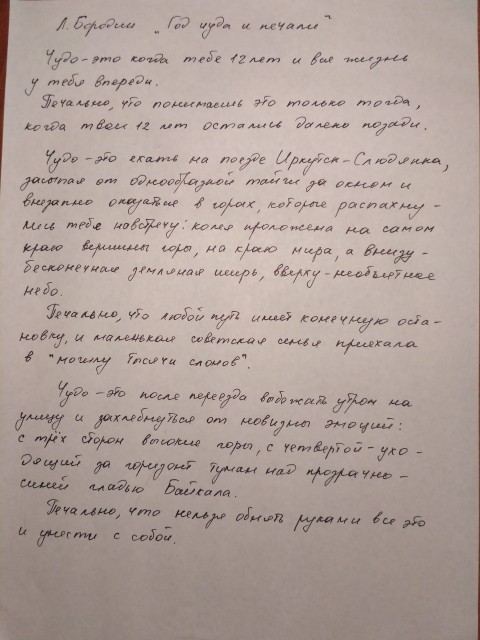 Л. Бородин „Год чуда и печали"
Чудо - это когда тебе 12 лет и вся жизнь
у тебя впереди.
Печально, что понимаешь это только тогда,
когда твои 12 лет остались далеко позади.
Чудо - это ехать на поезде Иркутск-Слюдянка,
засыпая от однообразной тайги за окном и
внезапно оказаться в горах, которые распахну-
лись тебе навстречу: колея проложена на самом
краю вершины горы, на краю мира, а внизу-
бесконечная земляная ширь, вверху - необъятное
небо.
Печально, что любой путь имеет конечную оста-
новку, и маленькая советская семья приехала
в "могилу тысячи слонов".
Чудо - это после переезда выбежать утром на
улицу и захлебнуться от новизны эмоций:
с трёх сторон высокие горы, с четвертой - ухо-
дящий за горизонт туман над прозрачно-
синей гладью Байкала.
Печально, что нельзя обнять руками все это
и унести с собой.